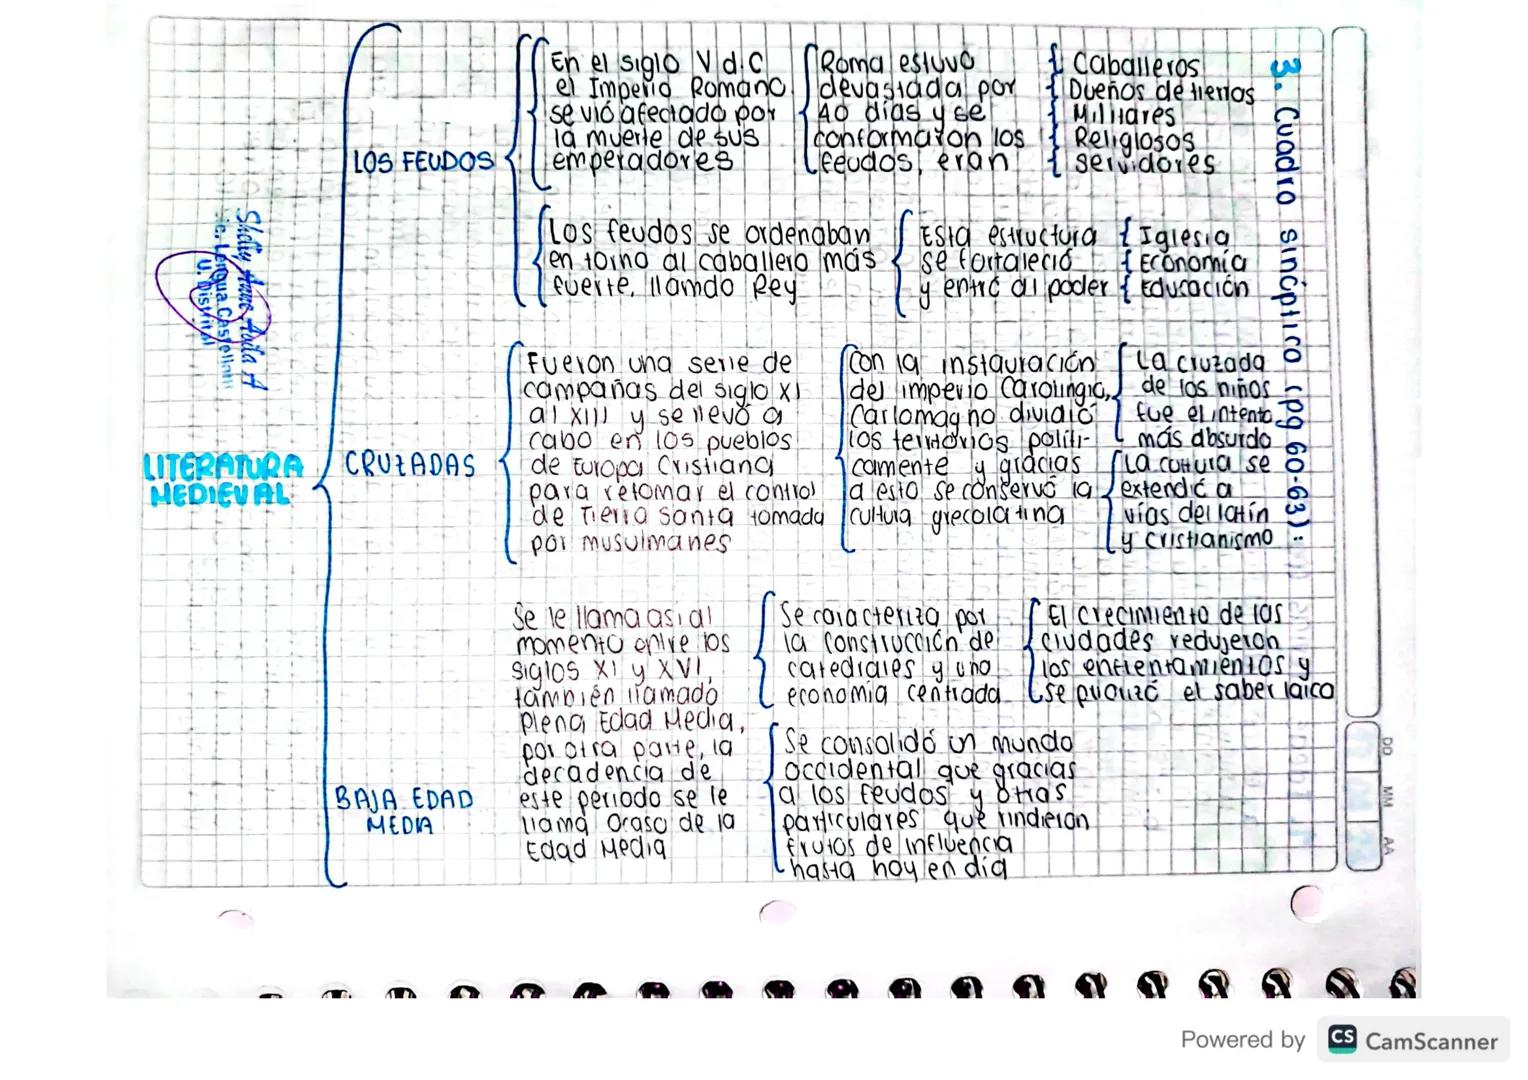 3. Cuadro sinóptico (pg 60-63):
LITERATURA
MEDIEVAL
LOS FEUDOS
En el siglo V d.C
el Imperio Romano
se vió afectado por
la muerte de sus
emperadores
Roma estuvo
devastada por
40 días y se
conformaron los
feudos, eran
Caballeros
Dueños de tierras
Militares
Religiosos
Servidores
Los feudos se ordenaban
en torno al caballero más
fuerte, llamdo Rey
Esta estructura
se fortaleció
y entró al poder
Iglesia
Economía
Educación
CRUZADAS
Fueron una serie de
campañas del siglo XI
al XIII y se llevó a
cabo en los pueblos
de Europa Cristiana
para retomar el control
de Tierra santa tomada
por musulmanes
Con la instauración
del imperio Carolingio,
Carlomagno dividió
los territorios políti-
camente y gracias
a esto se conservó la
cultura grecolatina
La cruzada
de los niños
fue el intento
más absurdo
La cultura se
extendió a
vías del latín
y cristianismo
BAJA EDAD
MEDIA
Se le llama así al
momento entre los
siglos XI y XVI,
también llamado
Plena Edad Media,
por otra parte, la
decadencia de
este periodo se le
llama Ocaso de la
Edad Media
Se caracteriza por
la construcción de
catedrales y una
economía centrada
El crecimiento de las
ciudades redujeron
los enfrentamientos y
se el saber laico
Se consolidó un mundo
occidental que gracias
a los feudos y otras
particulares que rindieron
frutos de influencia
hasta hoy en día
Lic. Lengua Castellana
U. Distrital
DD MM AA
Powered by CS CamScanner